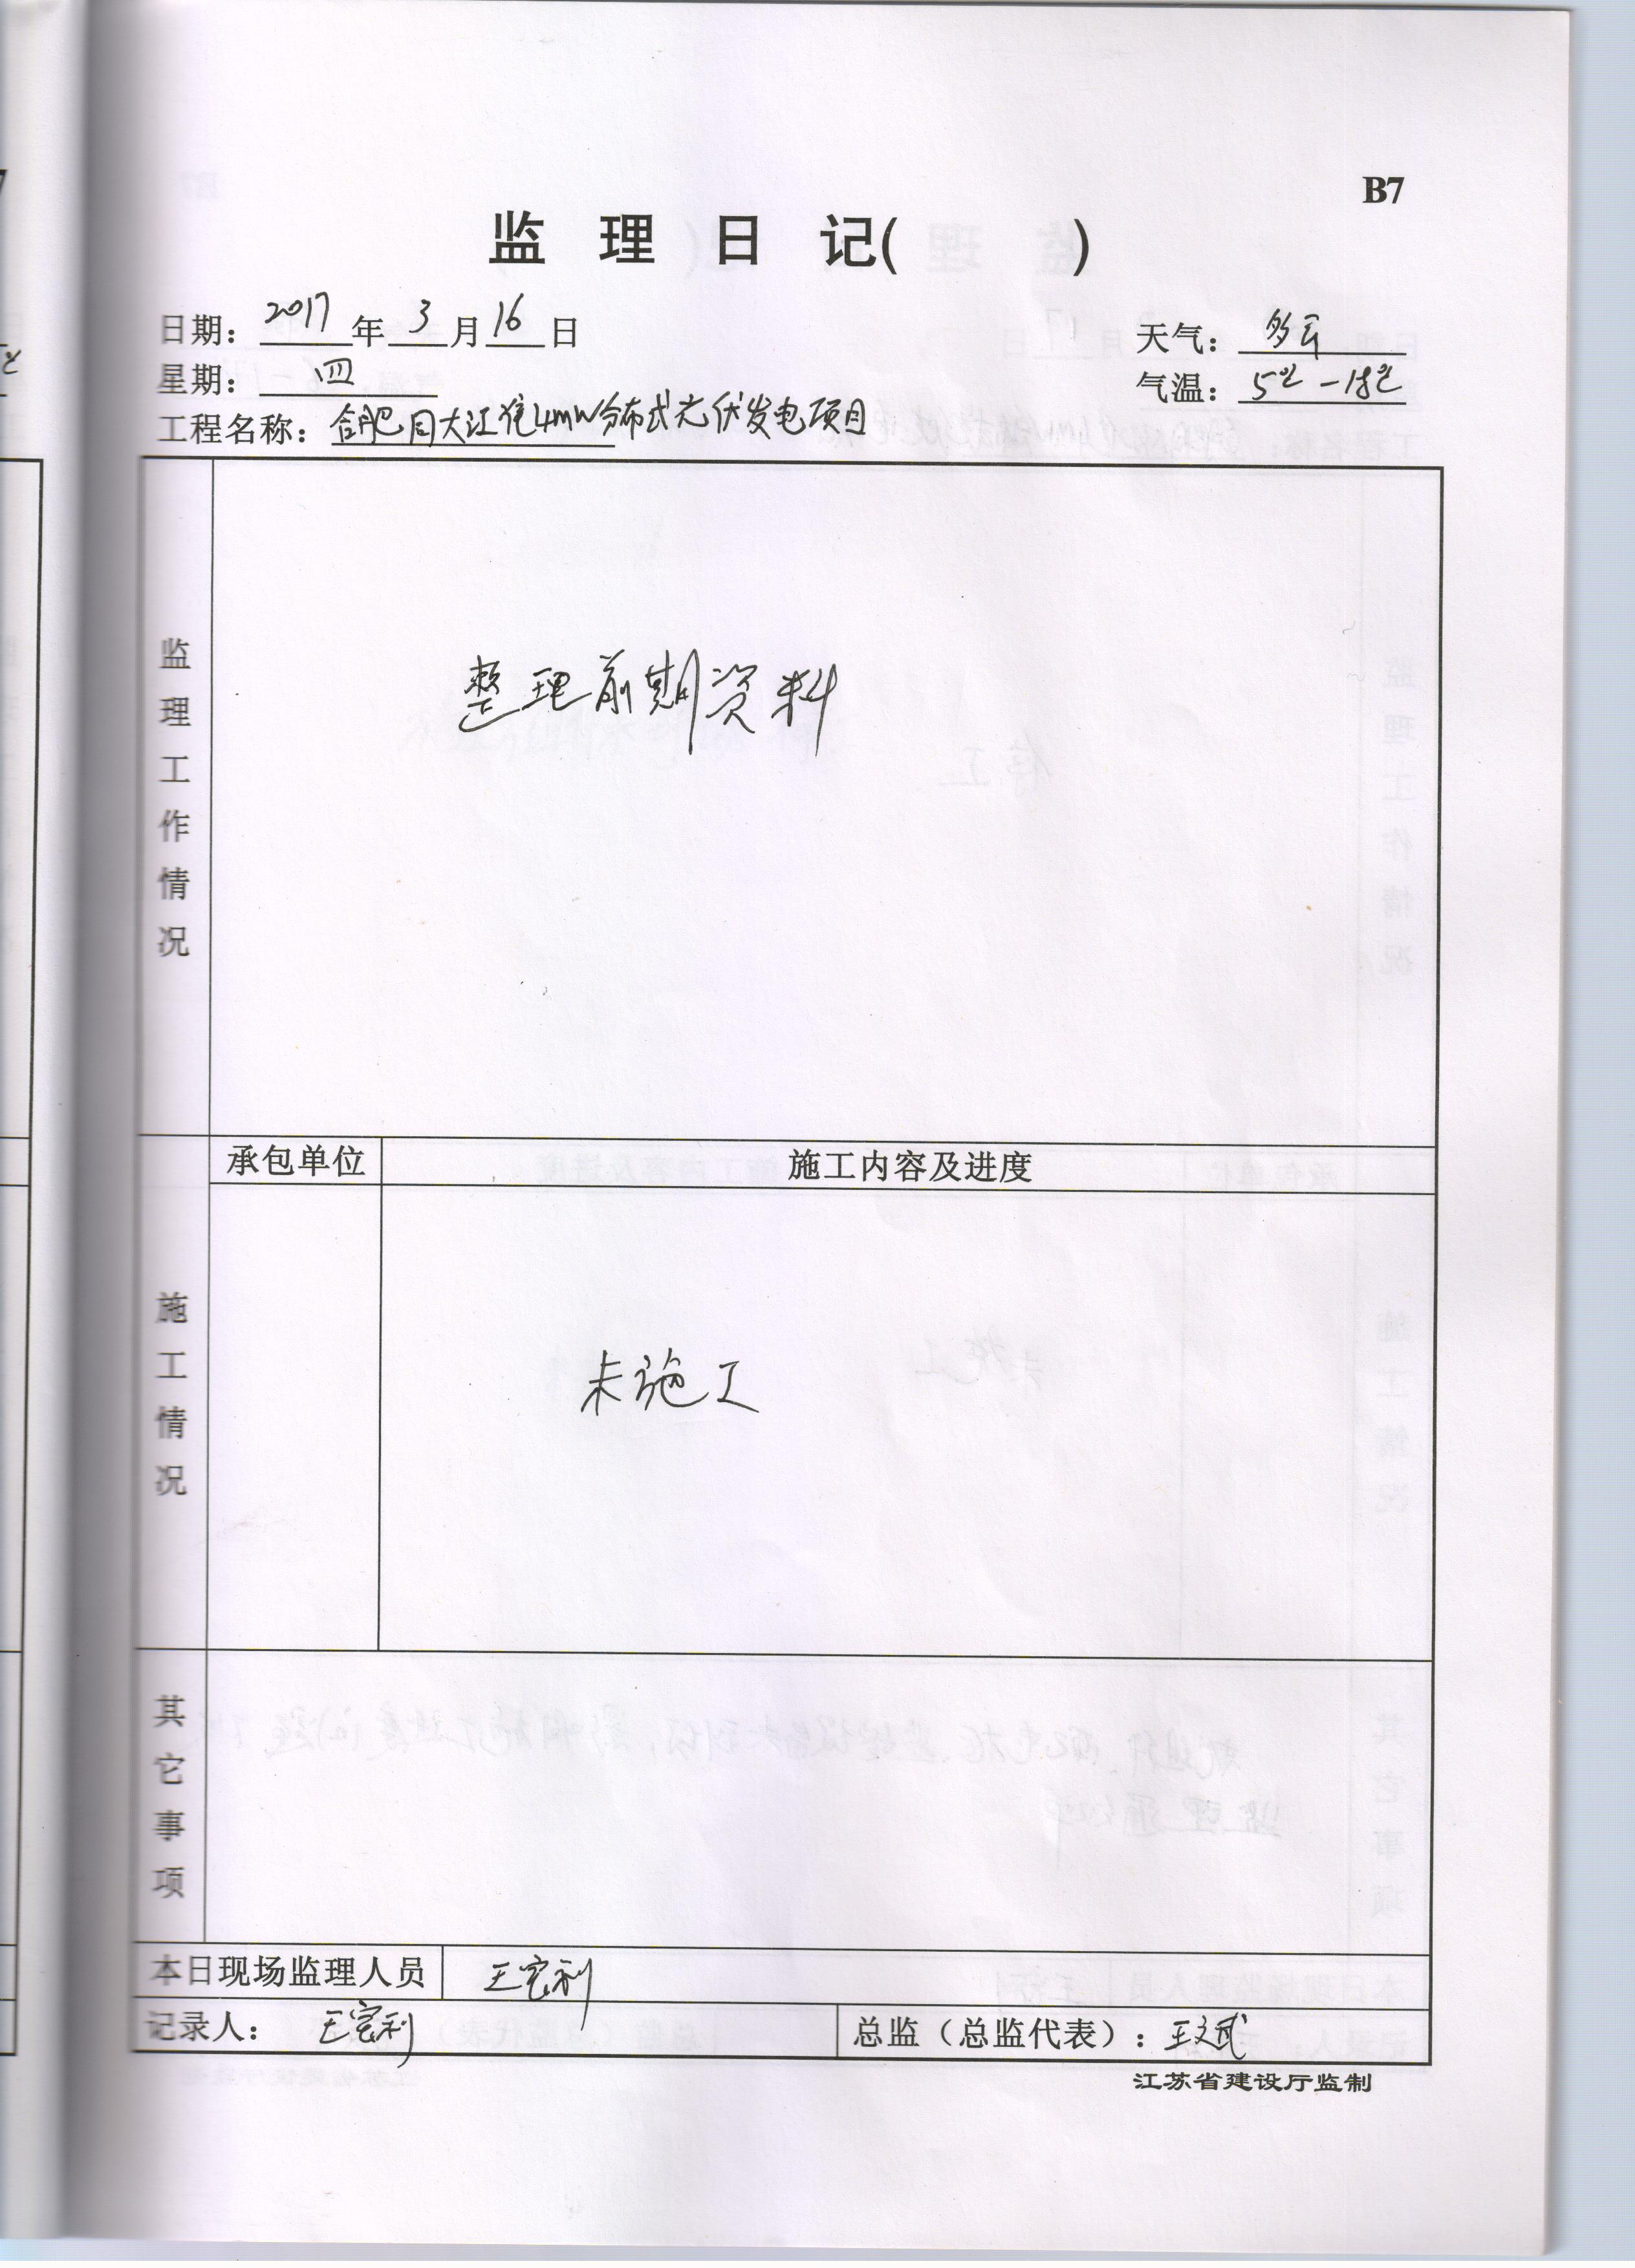 B7
监理日记( )
日期: 2017 年 3 月 16 日 天气: 多云
星期: 四 气温: 5℃-18℃
工程名称: 合肥 大江 4mw分布式光伏发电项目
监理工作情况
整理前期资料
承包单位 施工内容及进度
施工情况
未施工
其它事项
本日现场监理人员 王宏利
记录人: 王宏利 总监(总监代表): 王文武
江苏省建设厅监制